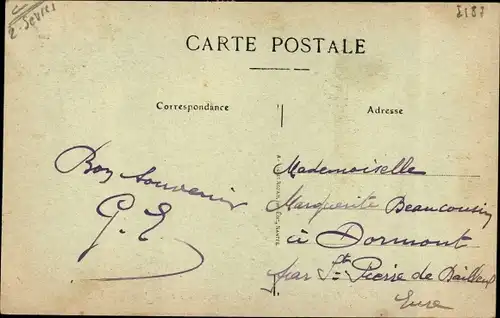 2. Sèvres
2187
CARTE POSTALE
Correspondance
Adresse
Bon souvenir
G. E
Mademoiselle
Marguerite Beaucousin
à Dormont
par St Pierre de Bailleul
Eure